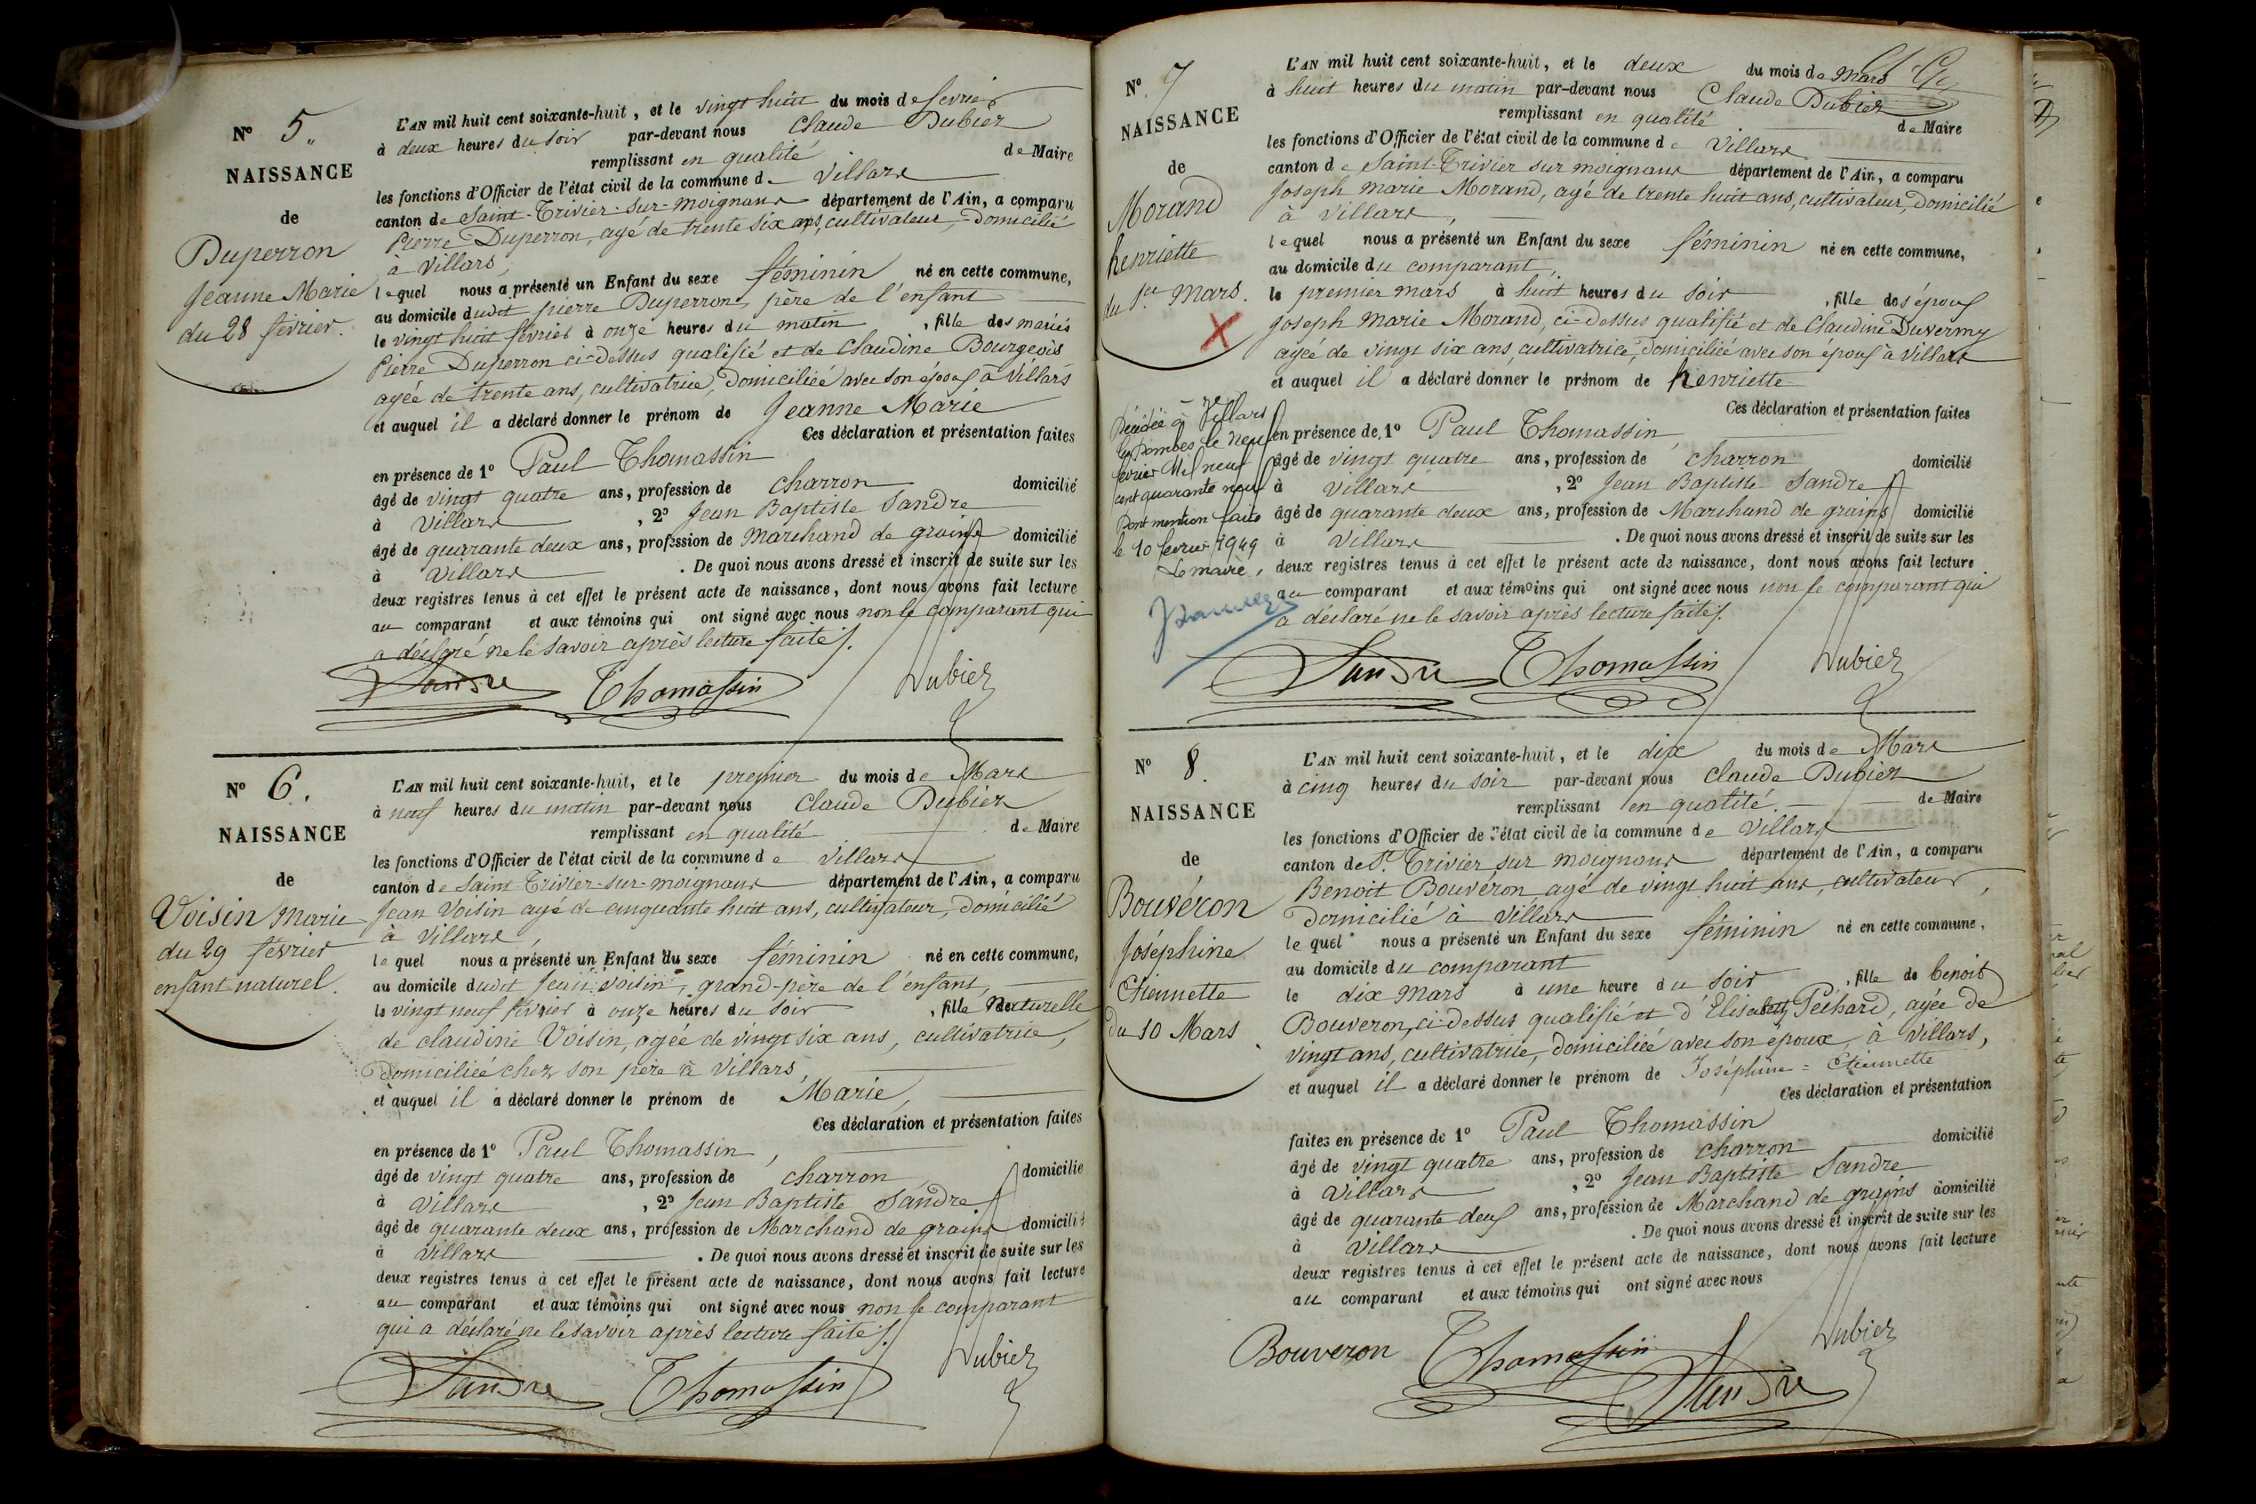 N° 5
NAISSANCE
de
Duperron
Jeanne Marie
du 28 février.
L'AN mil huit cent soixante-huit, et le vingt huit du mois de février
à deux heures du soir par-devant nous Claude Dubiez
remplissant en qualité de Maire
les fonctions d'Officier de l'état civil de la commune de Villars
canton de Saint-Trivier-sur-moignans département de l'Ain, a comparu
Pierre Duperron, agé de trente six ans, cultivateur, domicilié
à Villars,
lequel nous a présenté un Enfant du sexe féminin né en cette commune,
au domicile dudit pierre Duperron, père de l'enfant
le vingt huit février à onze heures du matin, fille des mariés
Pierre Duperron ci-dessus qualifié et de Claudine Bourgeois
agée de trente ans, cultivatrice, domiciliée avec son époux à Villars
et auquel il a déclaré donner le prénom de Jeanne Marie
Ces déclaration et présentation faites
en présence de 1° Paul Thomassin
âgé de vingt quatre ans, profession de charron domicilié
à Villars, 2° Jean Baptiste Sandre
âgé de quarante deux ans, profession de Marchand de grains domicilié
à Villars. De quoi nous avons dressé et inscrit de suite sur les
deux registres tenus à cet effet le présent acte de naissance, dont nous avons fait lecture
au comparant et aux témoins qui ont signé avec nous non le comparant qui
a déclaré ne le savoir après lecture faite.
Sandre Thomassin Dubiez
N° 6.
NAISSANCE
de
Voisin Marie
du 29 février
enfant naturel.
L'AN mil huit cent soixante-huit, et le premier du mois de Mars
à neuf heures du matin par-devant nous Claude Dubiez
remplissant en qualité de Maire
les fonctions d'Officier de l'état civil de la commune de Villars
canton de Saint-Trivier-sur-moignans département de l'Ain, a comparu
Jean Voisin agé de cinquante huit ans, cultivateur, domicilié
à Villars,
lequel nous a présenté un Enfant du sexe féminin né en cette commune,
au domicile dudit Jean Voisin, grand-père de l'enfant,
le vingt neuf février à onze heures du soir, fille naturelle
de claudine Voisin, agée de vingt six ans, cultivatrice,
domiciliée chez son père à Villars,
et auquel il a déclaré donner le prénom de Marie,
Ces déclaration et présentation faites
en présence de 1° Paul Thomassin,
âgé de vingt quatre ans, profession de charron domicilié
à Villars, 2° Jean Baptiste Sandre
âgé de quarante deux ans, profession de Marchand de grains domicilié
à Villars. De quoi nous avons dressé et inscrit de suite sur les
deux registres tenus à cet effet le présent acte de naissance, dont nous avons fait lecture
au comparant et aux témoins qui ont signé avec nous non le comparant
qui a déclaré ne le savoir après lecture faite.
Sandre Thomassin Dubiez
N° 7
NAISSANCE
de
Morand
henriette
du 1er Mars.
Décédée à Villars
les Dombes le neuf
février Mil neuf
cent quarante neuf
Dont mention faite
le 10 février 1949
Le maire,
L'AN mil huit cent soixante-huit, et le deux du mois de mars
à huit heures du matin par-devant nous Claude Dubiez
remplissant en qualité de Maire
les fonctions d'Officier de l'état civil de la commune de Villars
canton de Saint-Trivier sur moignans département de l'Ain, a comparu
Joseph marie Morand, agé de trente huit ans, cultivateur, domicilié
à Villars,
lequel nous a présenté un Enfant du sexe féminin né en cette commune,
au domicile du comparant,
le premier mars à huit heures du soir, fille des époux
Joseph Marie Morand, ci-dessus qualifié et de Claudine Duvermy
agée de vingt six ans, cultivatrice, domiciliée avec son époux à Villars
et auquel il a déclaré donner le prénom de henriette
Ces déclaration et présentation faites
en présence de 1° Paul Thomassin,
âgé de vingt quatre ans, profession de charron domicilié
à Villars, 2° Jean Baptiste Sandre
âgé de quarante deux ans, profession de Marchand de grains domicilié
à Villars. De quoi nous avons dressé et inscrit de suite sur les
deux registres tenus à cet effet le présent acte de naissance, dont nous avons fait lecture
au comparant et aux témoins qui ont signé avec nous non le comparant qui
a déclaré ne le savoir après lecture faite.
Sandre Thomassin Dubiez
N° 8.
NAISSANCE
de
Bouvéron
Joséphine
Etiennette
du 10 Mars.
L'AN mil huit cent soixante-huit, et le dix du mois de Mars
à cinq heures du soir par-devant nous Claude Dubiez
remplissant en qualité de Maire
les fonctions d'Officier de l'état civil de la commune de Villars
canton de St. Trivier sur moignans département de l'Ain, a comparu
Benoit Bouvéron agé de vingt huit ans, cultivateur,
domicilié à Villars
lequel nous a présenté un Enfant du sexe féminin né en cette commune,
au domicile du comparant
le dix mars à une heure du soir, fille de benoit
Bouveron, ci-dessus qualifié et d'Elisabeth Péchard, agée de
vingt ans, cultivatrice, domiciliée avec son époux, à Villars,
et auquel il a déclaré donner le prénom de Joséphine = Etiennette
Ces déclaration et présentation
faites en présence de 1° Paul Thomassin
âgé de vingt quatre ans, profession de charron domicilié
à Villars, 2° Jean Baptiste Sandre
âgé de quarante deux ans, profession de Marchand de grains domicilié
à Villars. De quoi nous avons dressé et inscrit de suite sur les
deux registres tenus à cet effet le présent acte de naissance, dont nous avons fait lecture
au comparant et aux témoins qui ont signé avec nous
Bouveron Thomassin Dubiez
Sandre